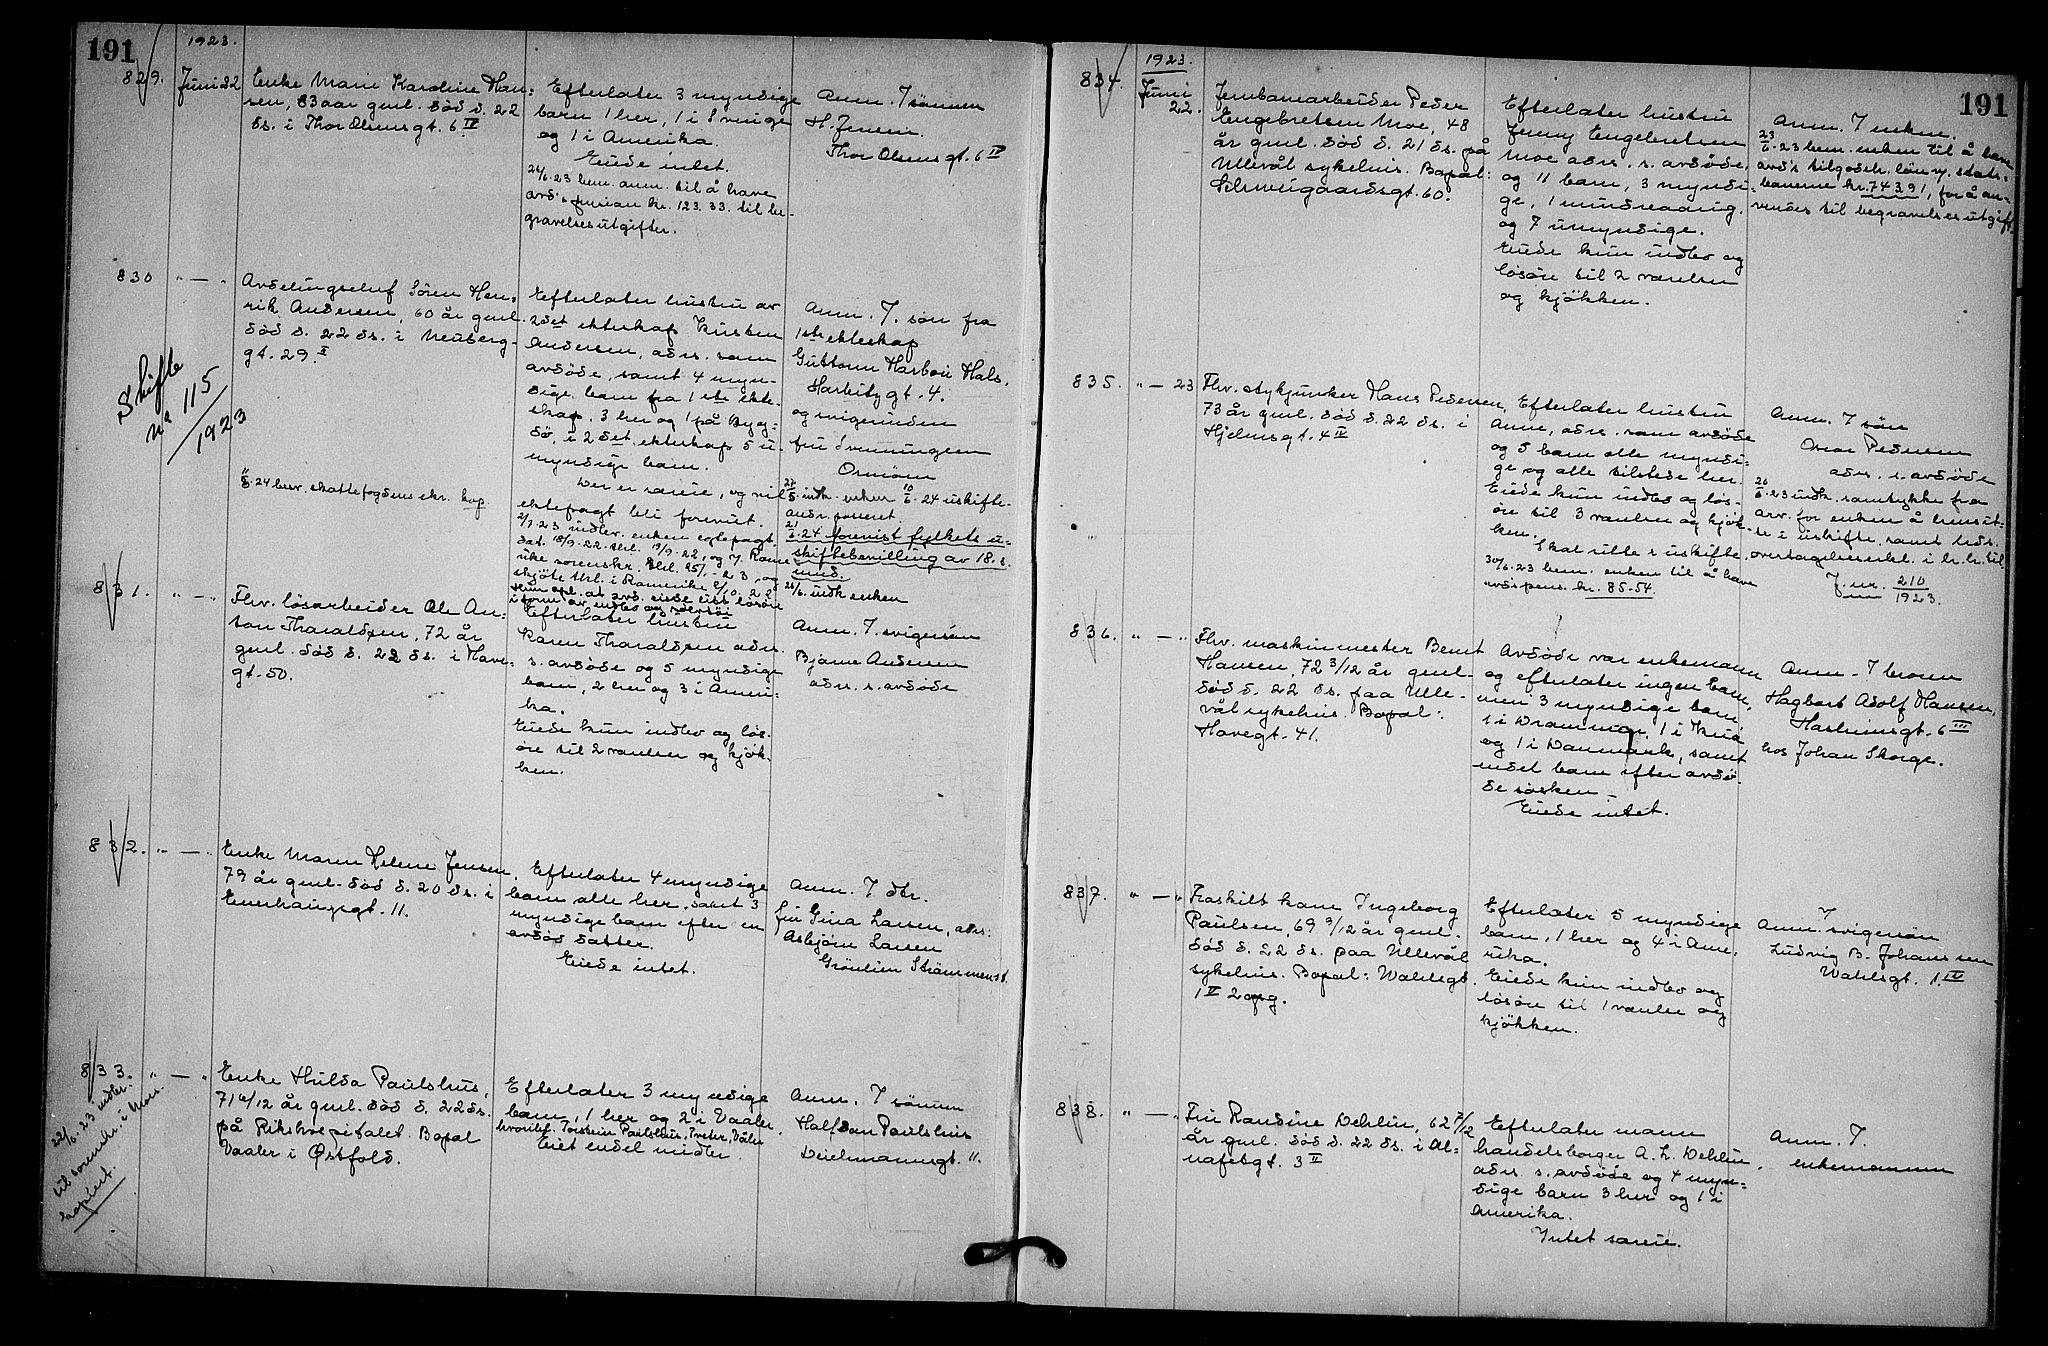 191
1923.
829.
Juni 22
Enke Marie Karoline Han-
sen, 83 aar gml. död d. 22
ds. i Thor Olsensgt. 6 IV
Efterlater 3 myndige
barn 1 her, 1 i Svinge
og 1 i Amerika.
Eiede intet.
26/6.23 bem. anm. til å have
avd.s formue kr. 123.33. til be-
gravelsesutgifter.
Anm. 7 sönnen
H. Jensen.
Thor Olsensgt. 6 IV
830
" — "
Avdelingschef Sören Hen-
rik Andersen, 60 år gml.
död d. 22 ds. i Neuberg-
gt. 29. I
Skifte
no 115
/1923
24 besv. skattefogdens skr. kop.
Efterlater hustru av
2det ekteskap Kirsten
Andersen, adr. som
avdöde, samt 4 myn-
dige barn fra 1ste ekte-
skap, 3 her og 1 på Byg-
dö, i 2det ekteskap 5 u-
myndige barn.
Der er særeie, og vil
ektepagt bli forevist.
2/7.23 indlev. enken egtepagt
dat. 18/9.22. thl. 19/9.22, og
skjöte thl. i Romerike
Anm. 7. sön fra
1ste ekteskap
Guttorm Harboe Hals,
Harbitzgt. 4.
og svigerinden
fru Svenningsen
Ormöen
27/5 indk. enken 10/6.24 uskifte-
andr. passeret
21/6.24 forevist fylkets u-
skiftebevilling av 18. s.
mnd.
26/6. indk enken
831.
" — "
Fhv. lösarbeider Ole An-
ton Tharaldsen, 72 år
gml. död d. 22 ds. i Have-
gt. 50.
Efterlater hustru
Karen Tharaldsen adr.
s. avdöde og 5 myndige
barn, 2 her og 3 i Ameri-
ka.
Eiede kun indbo og lös-
öre til 2 værelser og kjök-
ken.
Anm. 7. svigersön
Bjarne Andersen
adr. s. avdöde
832.
" — "
Enke Maren Helene Jensen,
79 år gml. död d. 20 ds. i
Enerhaugsgt. 11.
Efterlater 4 myndige
barn alle her, samt 3
myndige barn efter en
avdöd datter.
Eiede intet.
Anm. 7 dtr.
fru Gina Larsen, adr:
Asbjörn Larsen
Grönlien Strömmen st.
833.
" — "
22/6.23 indber.
til sorenskr. i Moss.
kopiert.
Enke Hulda Paulshus,
71 6/12 år gml. död d. 22 ds.
på Rikshospitalet. Bopal
Vaaler i Østfold.
Efterlater 3 myndige
barn, 1 her og 2 i Vaaler.
hvorav Torstein Paulshus, Tveter, Våler
Eiet endel midler.
Anm. 7 sönnen
Halfdan Paulshus
Deichmannsgt. 11.
191
1923.
834.
Juni
22.
Jernbanearbeider Peder
Engebretsen Moe, 48
år gml. död d. 21 ds. på
Ullevål sykehus. Bopal:
Schweigaardsgt. 60.
Efterlater hustru
Jenny Engebretsen
Moe adr. s. avdöde,
og 11 barn, 3 myndi-
ge, 1 mindreaarig,
og 7 umyndige.
Eiede kun indbo og
lösöre til 2 værelser
og kjökken.
Anm. 7 enken.
23/6.23 bem. enken til å have
avd.s tilgodeh. lön v. stats-
banerne kr. 743.91, for å an-
vendes til begravelsesutgift.
835.
" — 23
Fhv. stykjunker Hans Pedersen,
73 år gml. död d. 22 ds. i
Hjelmsgt. 4 IV
Efterlater hustru
Anne, adr. som avdöde
og 5 barn alle myndi-
ge og alle tilstede her.
Eiede kun indbo og lös-
öre til 3 værelser og kjök-
ken.
Skal sitte i uskifte.
30/6.23 bem. enken til å have
avd.s pens. kr. 85.54.
Anm. 7 sön
Oscar Pedersen
adr. s. avdöde
26/6.23 indk. samtykke fra
arv. for enken å hensit-
te i uskifte, samt
overtagelseserkl. i h.h.til
J.nr. 210/1923.
836.
" — "
Fhv. maskinmester Bernt
Hansen, 72 3/12 år gml.
död d. 22 ds. paa Ulle-
vål sykehus. Bopal:
Havegt. 41.
Avdöde var enkemann
og efterlater ingen barn,
men 3 myndige barn,
1 i Drammen, 1 i
og 1 i Danmark, samt
endel barn efter avdö-
de sösken
Eiede intet.
Anm. 7 broren
Hagbart Adolf Hansen,
Haslumsgt. 6 III
hos Johan Skorge.
837.
" — "
Fraskilt kone Ingeborg
Paulsen, 69 9/12 år gml.
död d. 22 ds. paa Ullevål
sykehus. Bopal: Wahlsgt.
1 IV 2 opg.
Efterlater 5 myndige
barn, 1 her og 4 i Ame-
rika.
Eiede kun indbo og
lösöre til 1 værelse og
kjökken.
Anm. 7 svigersön
Ludvig B. Johansen
Wahlsgt. 1. IV
838.
" — "
Fru Randine Dehlin, 62 7/12
år gml. död d. 22 ds. i Ol-
nafetsgt. 3 II
Efterlater mann
handelsborger A. L. Dehlin,
adr. s. avdöde og 4 myn-
dige barn 3 her og 1 i
Amerika.
Intet særeie.
Anm. 7.
enkemannen